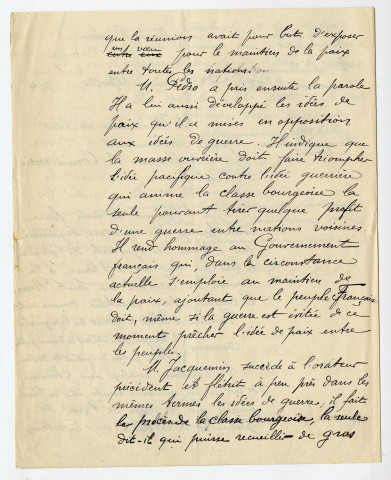 que la réunion avait pour but d'exposer
un vœu pour le maintien de la paix
entre toutes les nations.
M. Pédro a pris ensuite la parole
Il a lui aussi développé les idées de
paix qu'il a mises en opposition
aux idées de guerre. Il indique que
la masse ouvrière doit faire triompher
l'idée pacifique contre l'idée guerrière
qui anime la classe bourgeoise la
seule pouvant tirer quelque profit
d'une guerre entre nations voisines
Il rend hommage au Gouvernement
français qui, dans la circonstance
actuelle s'emploie au maintien de
la paix, ajoutant que le peuple Français
doit, même si la guerre est évitée de ce
moment prêcher l'idée de paix entre
les peuples.
M. Jacquemin succède à l'orateur
précédent et flétrit à peu près dans les
mêmes termes les idées de guerre, il fait
le procès de la classe bourgeoise, la seule
dit-il qui puisse recueillir de gros